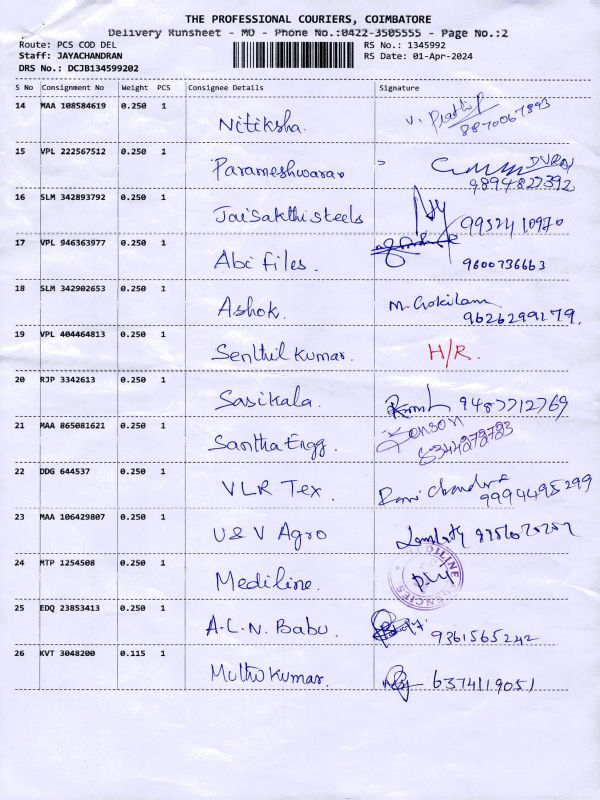 THE PROFESSIONAL COURIERS, COIMBATORE
Delivery Runsheet - MO - Phone No.:0422-3505555 - Page No.:2
Route: PCS COD DEL RS No.: 1345992
Staff: JAYACHANDRAN RS Date: 01-Apr-2024
DRS No.: DCJB134599202
S No Consignment No Weight PCS Consignee Details Signature
14 MAA 108584619 0.250 1 Nitiksha. 8870067893
15 VPL 222567512 0.250 1 Parameshwaran 9894827392
16 SLM 342893792 0.250 1 Jaisakthi steels 9952410970
17 VPL 946363977 0.250 1 Abi files. 9600736663
18 SLM 342902653 0.250 1 Ashok. M. Gokilam 9626299179.
19 VPL 404464813 0.250 1 Senthil kumar. H/R.
20 RJP 3342613 0.250 1 Sasikala. 9487712769
21 MAA 865081621 0.250 1 Santha Engg. 8344272723
22 DDG 644537 0.250 1 VLR Tex. 9994495299
23 MAA 106429807 0.250 1 U & V Agro
24 MTP 1254508 0.250 1 Mediline.
25 EDQ 23853413 0.250 1 A.L.N. Babu. 9361565242
26 KVT 3048200 0.115 1 Muthukumar. 6374119051